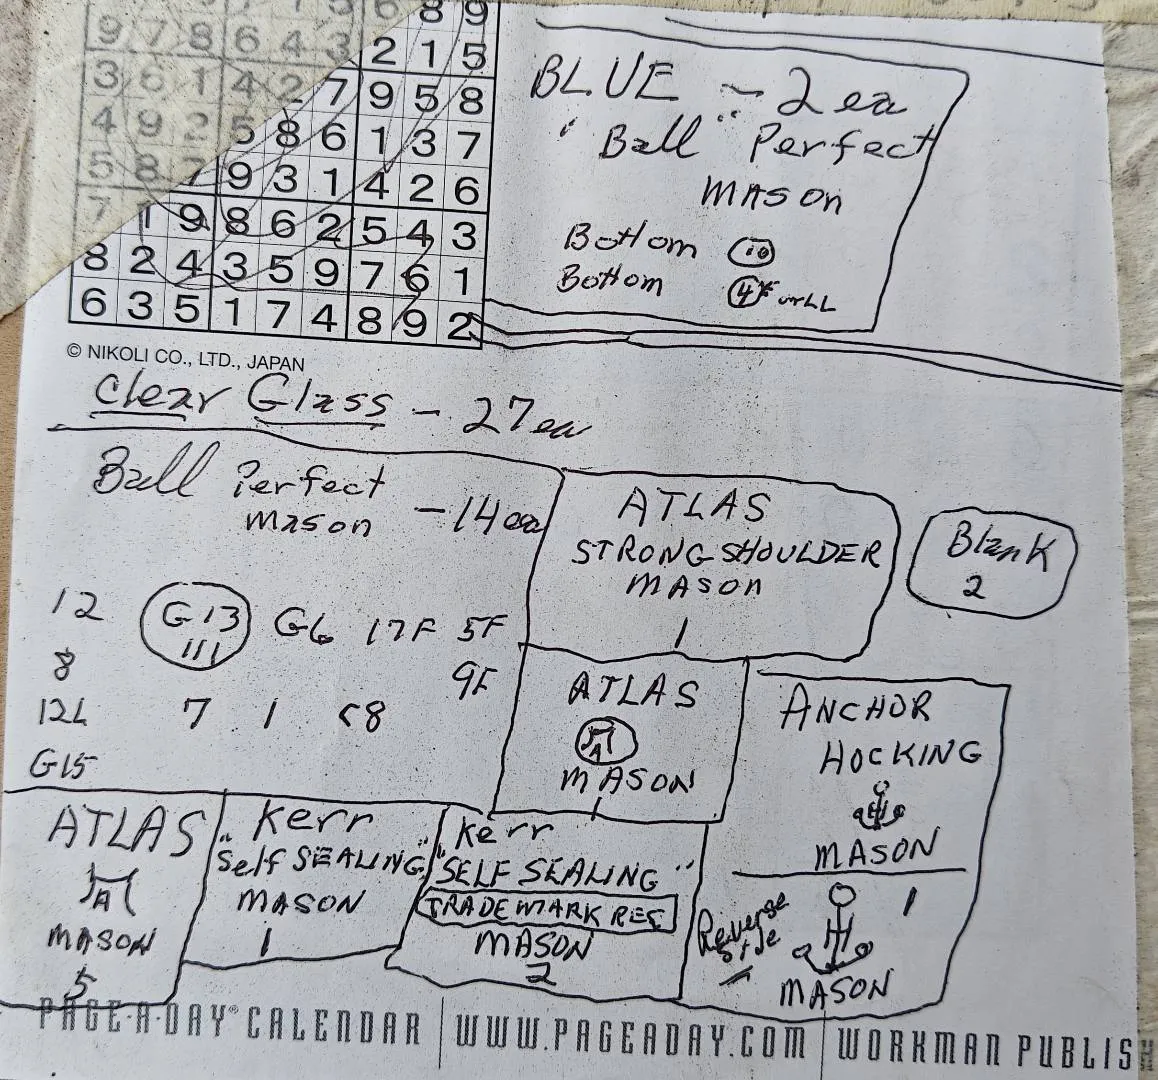 8 9
9 7 8 6 4 3 2 1 5
3 6 1 4 2 7 9 5 8
4 9 2 5 8 6 1 3 7
5 8 7 9 3 1 4 2 6
7 1 9 8 6 2 5 4 3
8 2 4 3 5 9 7 6 1
6 3 5 1 7 4 8 9 2
© NIKOLI CO., LTD., JAPAN
BLUE ~ 2 ea
"Ball" Perfect
MASON
Bottom 10
Bottom 4
Clear Glass - 27 ea
Ball Perfect
mason - 14 ea
12 G13 G6 17F 5F
111
8 9F
12L 7 1 <8
G15
ATLAS
STRONG SHOULDER
MASON
1
Blank
2
ATLAS
A
MASON
1
ANCHOR
HOCKING
MASON
1
Reverse
side
MASON
ATLAS
A
MASON
5
Kerr
"Self SEALING"
MASON
1
Kerr
"SELF SEALING"
TRADEMARK REG
MASON
2
PAGE-A-DAY® CALENDAR | WWW.PAGEADAY.COM | WORKMAN PUBLISH